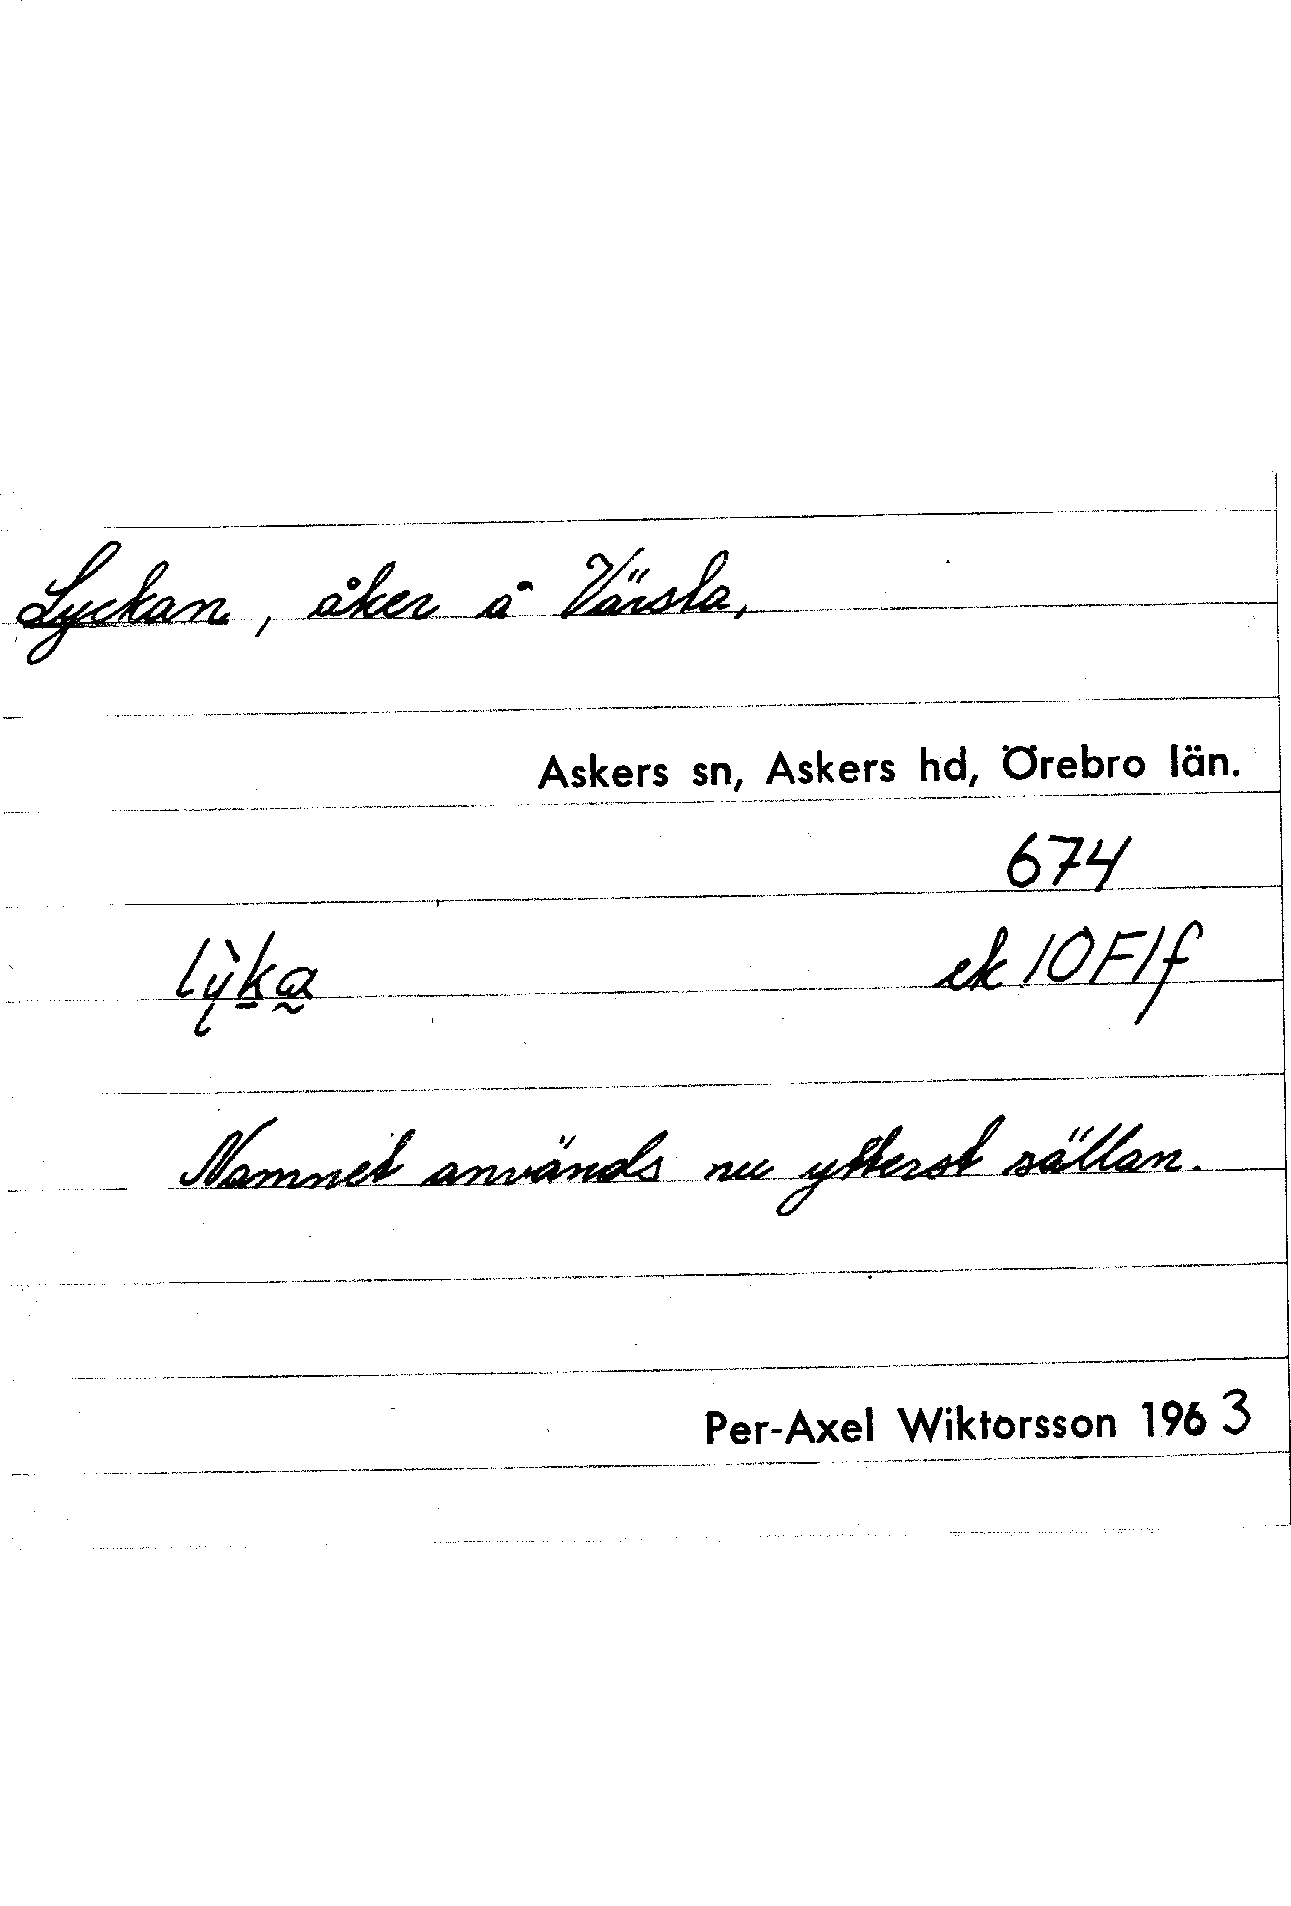 Lyckan, åker å Värsta,
Askers sn, Askers hd, Örebro län.
674
lỳka̰ ek 10F1f
Namnet används nu ytterst sällan.
Per-Axel Wiktorsson 1963